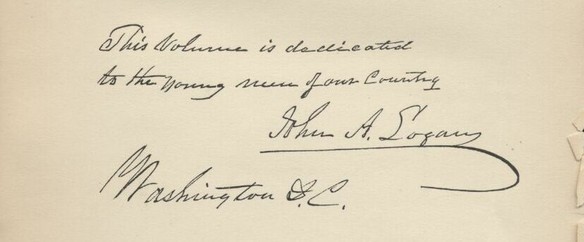 This Volume is dedicated
to the young men of our Country
John A. Logan
Washington D.C.